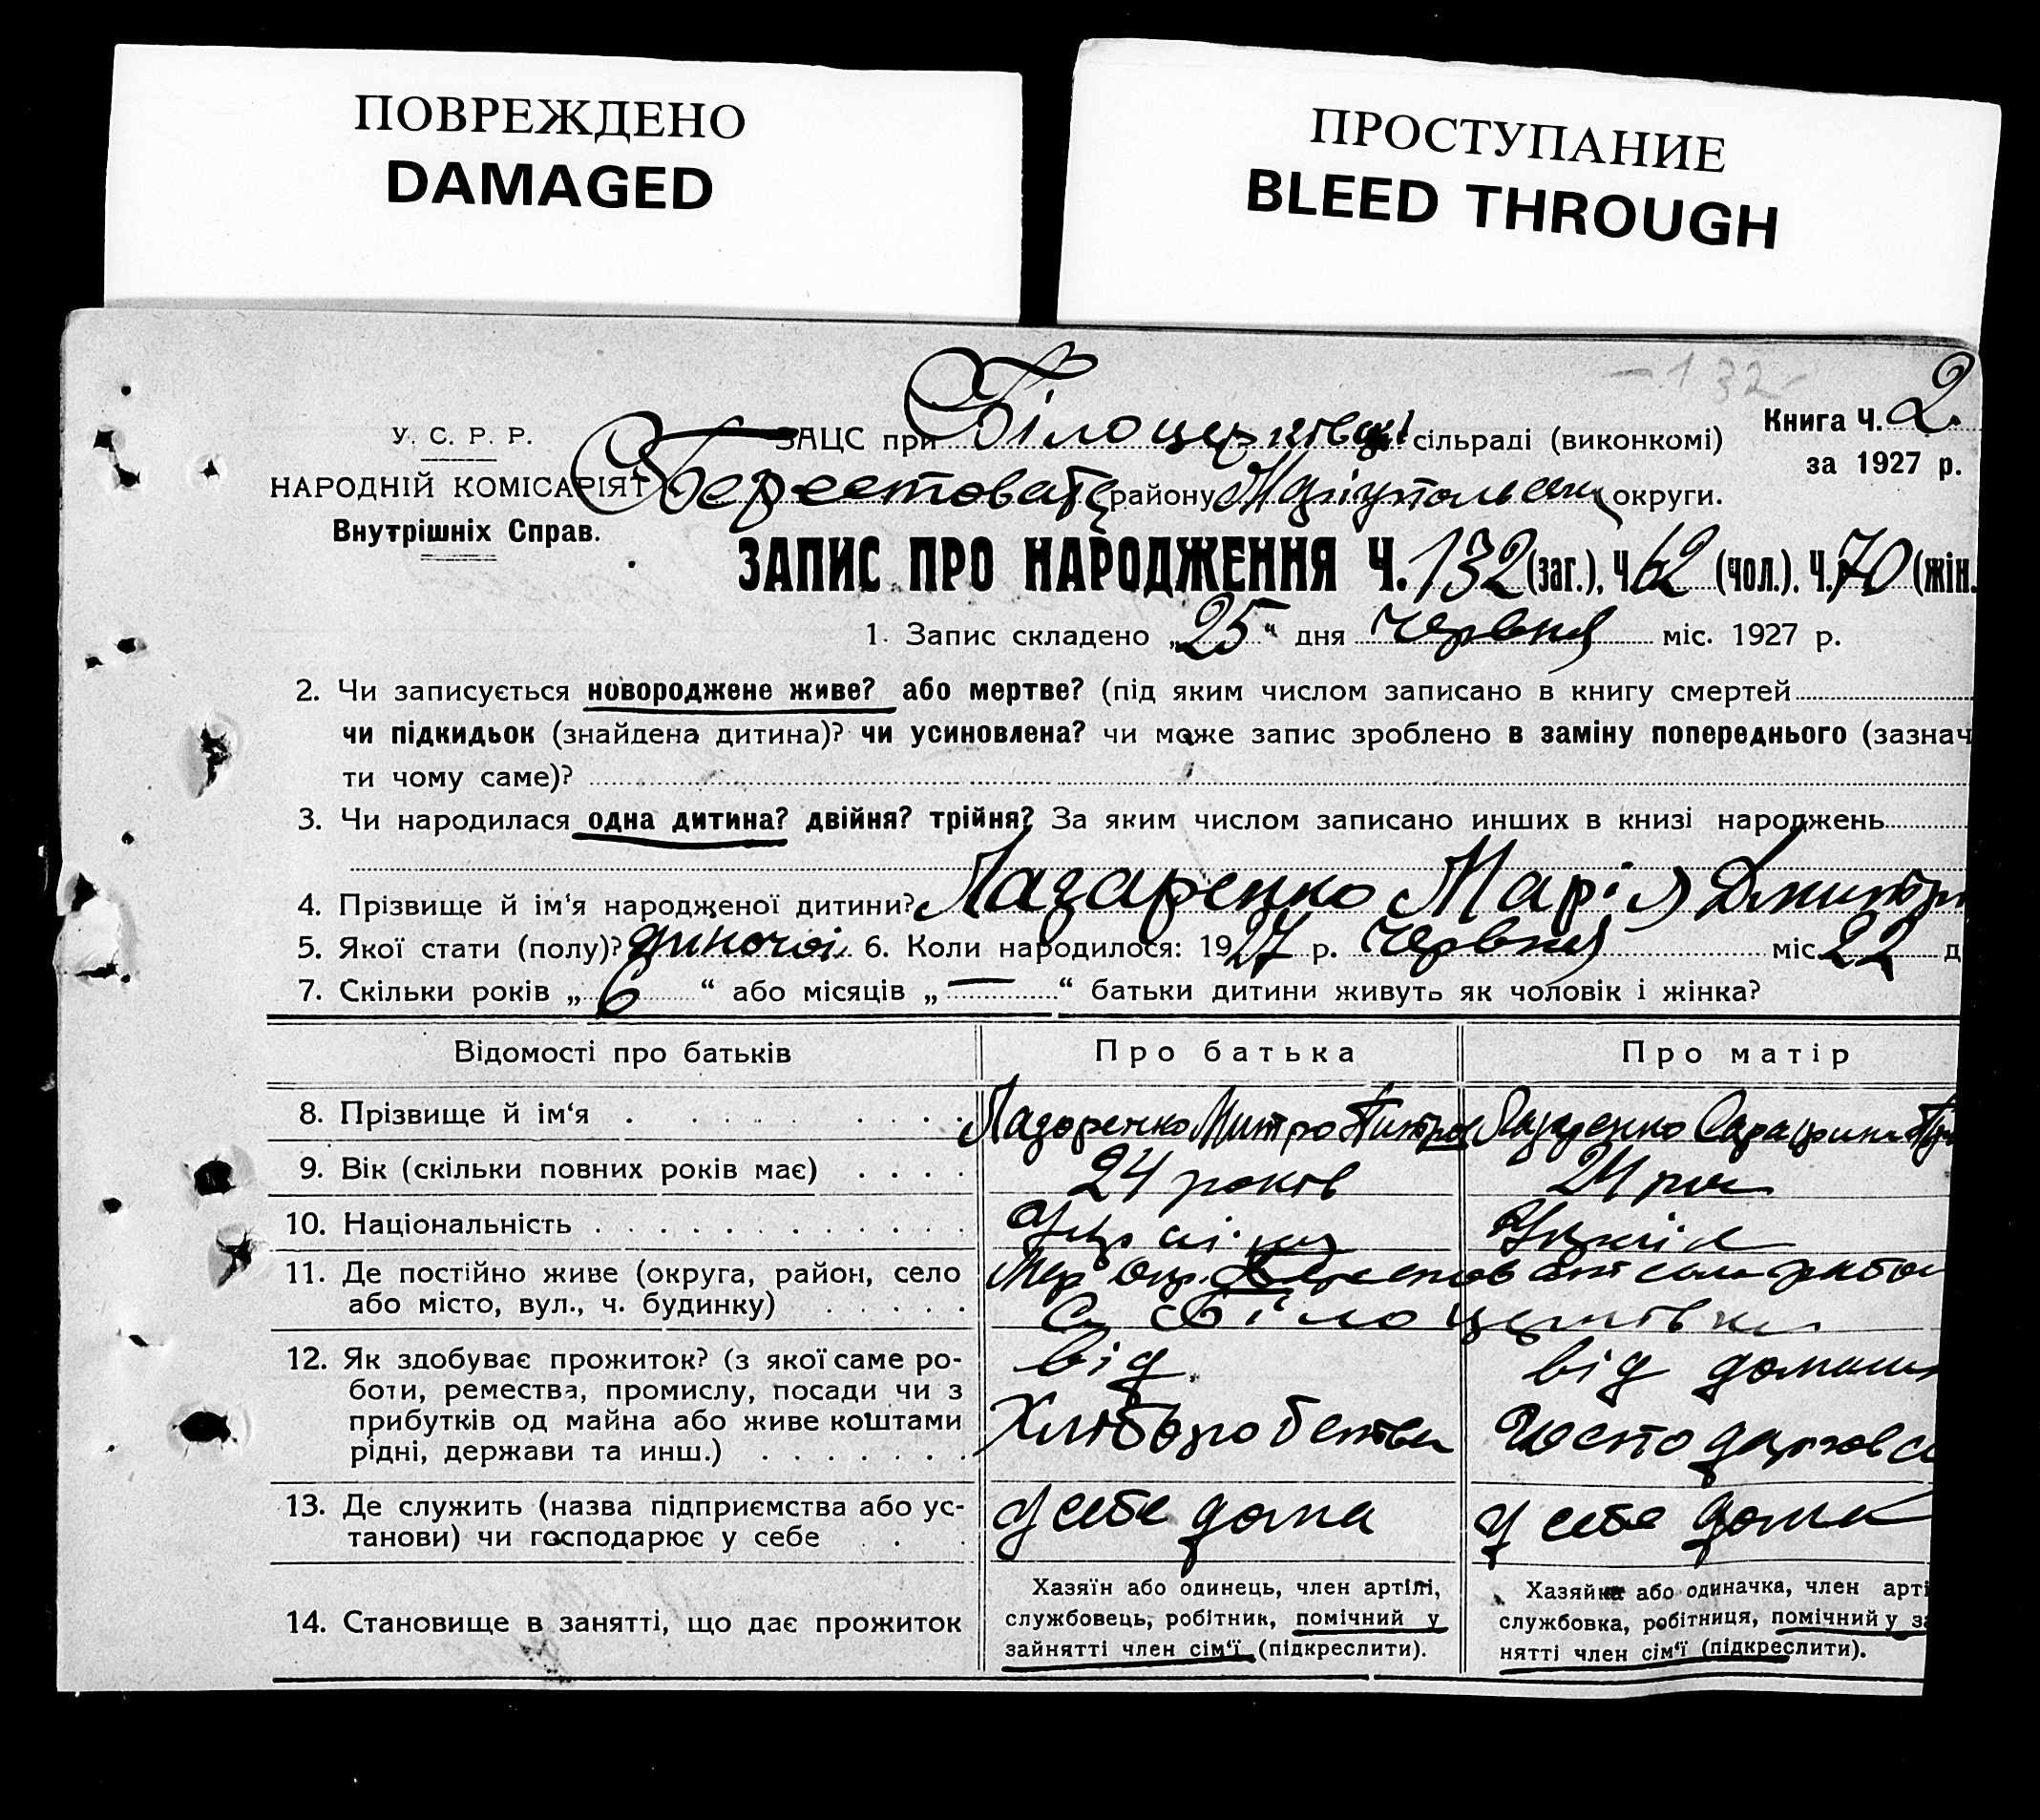 ПОВРЕЖДЕНО
DAMAGED
ПРОСТУПАНИЕ
BLEED THROUGH
- 132 -
Книга Ч. 2
за 1927 р.
У. С. Р. Р.
НАРОДНІЙ КОМІСАРІЯТ
Внутрішніх Справ.
ЗАЦС при сільраді (виконкомі)
району округи.
ЗАПИС ПРО НАРОДЖЕННЯ Ч. 132 (заг.), Ч. 62 (чол.). Ч. 70 (жін.
1. Запис складено „25“ дня червня міс. 1927 р.
2. Чи записується новороджене живе? або мертве? (під яким числом записано в книгу смертей
чи підкидьок (знайдена дитина)? чи усиновлена? чи може запис зроблено в заміну попереднього (зазнач
ти чому саме)?
3. Чи народилася одна дитина? двійня? трійня? За яким числом записано инших в книзі народжень
4. Прізвище й ім'я народженої дитини? Лазаренко Марія Дмитр
5. Якої стати (полу)? жіночої 6. Коли народилося: 1927 р. червня міс. 22 д
7. Скільки років „6“ або місяців „—“ батьки дитини живуть як чоловік і жінка?
Відомості про батьків
Про батька
Про матір
8. Прізвище й ім‘я
Лазаренко Митро
Лазаренко
9. Вік (скільки повних років має)
24 років
24 рок
10. Національність
11. Де постійно живе (округа, район, село
або місто, вул., ч. будинку)
12. Як здобуває прожиток? (з якої саме ро-
боти, ремества, промислу, посади чи з
прибутків од майна або живе коштами
рідні, держави та инш.)
від
Хліборобства
від домаш
13. Де служить (назва підприємства або ус-
танови) чи господарює у себе
у себе дома
у себе дома
14. Становище в занятті, що дає прожиток
Хазяїн або одинець, член артілі,
службовець, робітник, помічний у
зайнятті член сім‘ї (підкреслити).
Хазяйка або одиначка, член арті
службовка, робітниця, помічний у за
нятті член сім‘ї (підкреслити).